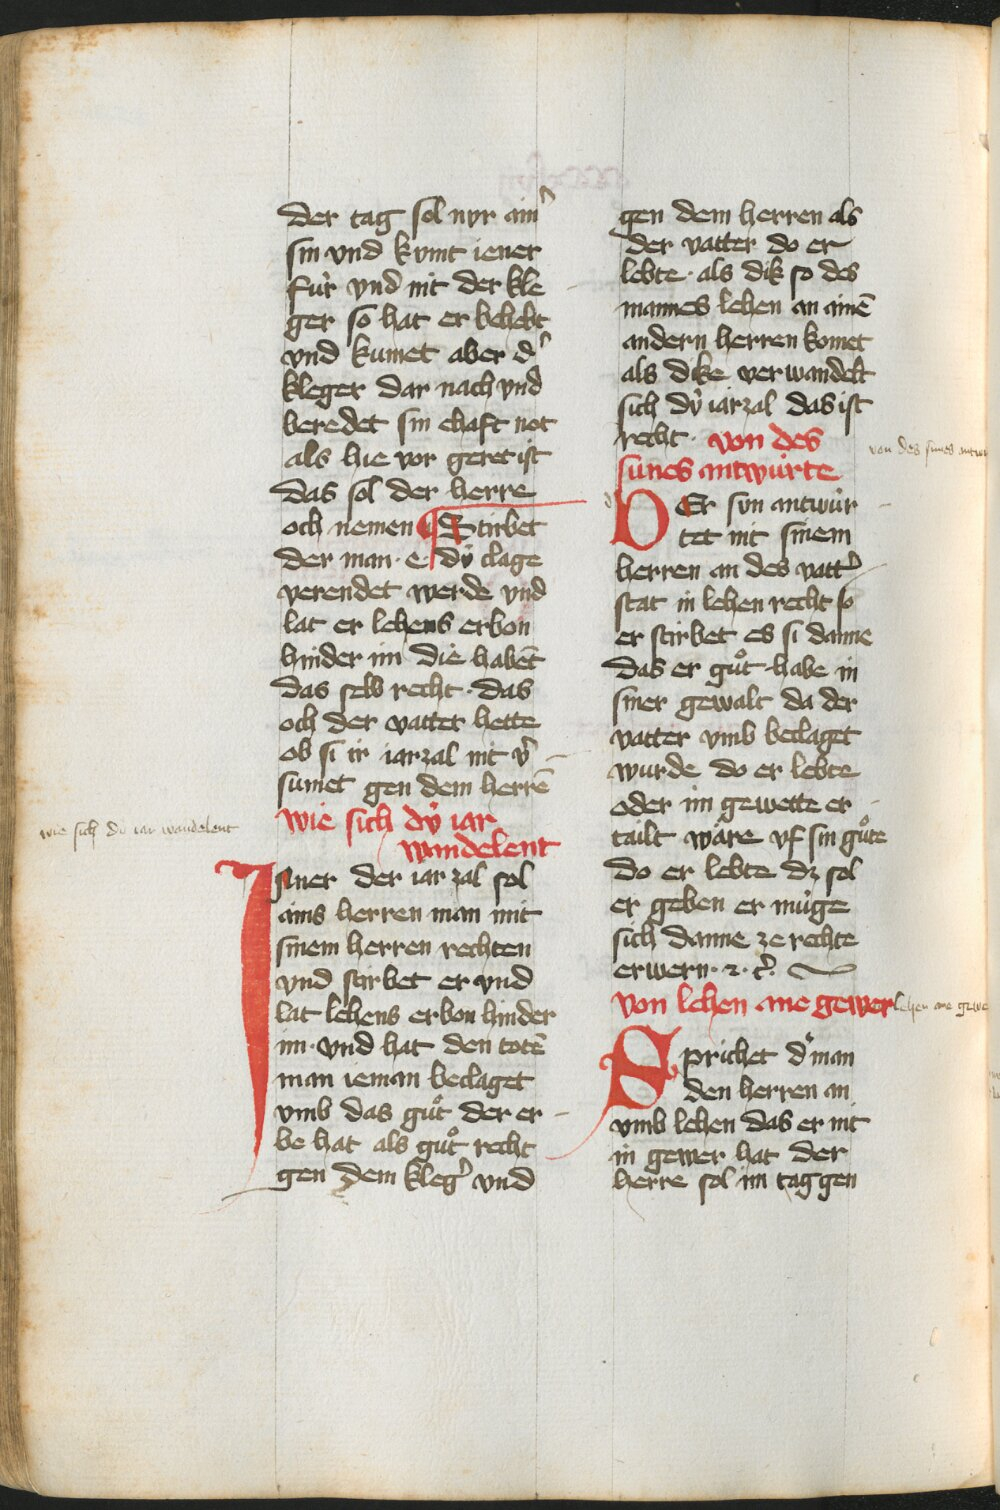 der tag sol nyr ainˀ
sin vnd kvmt iener
fúr vnd nit der kle
ger so hat er behebt
vnd kumet aber dˀ
kleger dar nach vnd
beredet sin ehaft not
als hie vor geret ist
das sol der herre
och nemen ¶ Stirbet
der man · e · dÿ clage
verendet werde vnd
lat er lehens erbon
hinder im die habēt
das selb recht · das
och der vatter hette
ob si ir iarzal nit vˀ
sumet gen dem herrē
wie sich dÿ iar
wandelent
wie sich dÿ iar wandelent
Jnner der iar zal sol
ains herren man mit
sinem herren rechten
vnd stirbet er vnd
lat lehens erbon hinder
im · vnd hat den totē
man ieman beclaget
vmb das guͦt der er
be hat als guͦt recht
gen dem klegˀ vnd
gen dem herren als
der vatter do er
lebte · als dik so des
mannes lehen an ainē
andern herren komet
als dike verwandelt
sich dÿ iarzal das ist
recht · von des
sunes antwúrte
von des sunes antwu
DEr svn antwúr
tet nit sinem
herren an des vattˀ
stat in lehen recht so
er stirbet es si danne
das er guͦt habe in
siner gewalt da der
vatter vmb beclaget
wurde do er lebte
oder im gewette er
tailt wåre vf sin guͦte
do er lebte dz sol
er geben er múge
sich danne ze rechte
erwern · ⁊ · cˀ.
von lehen ane gewer
lehen ane gewe
Sprichet dˀ man
den herren an
vmb lehen das er nit
in gewer hat der
herre sol im tag gen